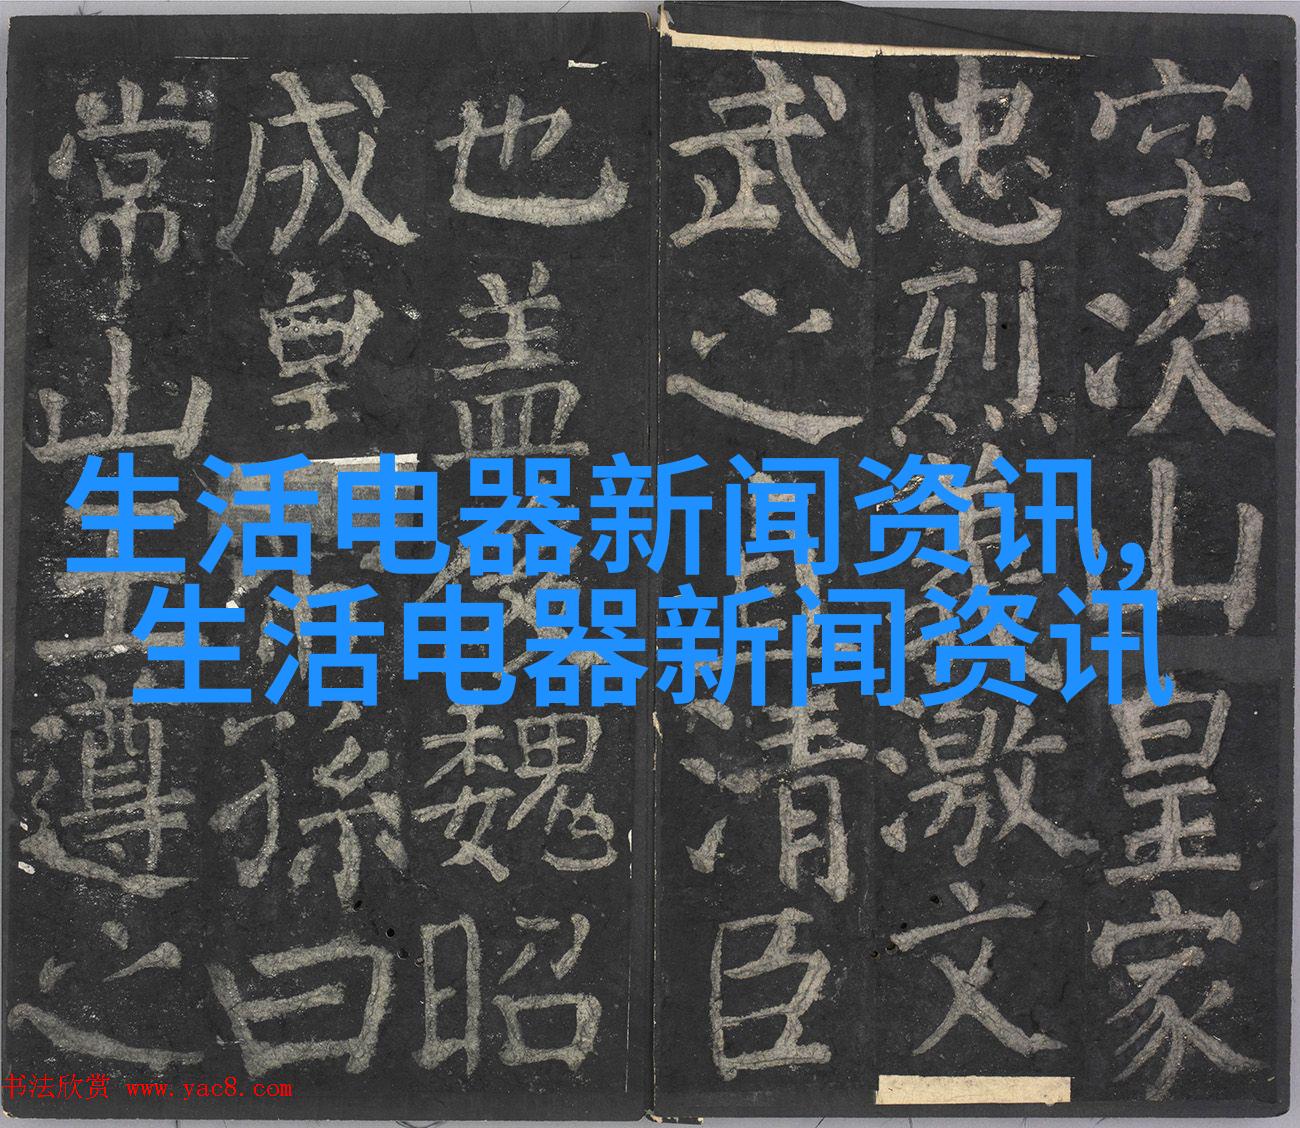 生活电器新闻资讯,
生活电器新闻资讯
字次山皇家
忠烈義激文
武之清臣
也盖魏昭
成皇孫曰
常山王遵之
书法欣赏 www.yac8.com